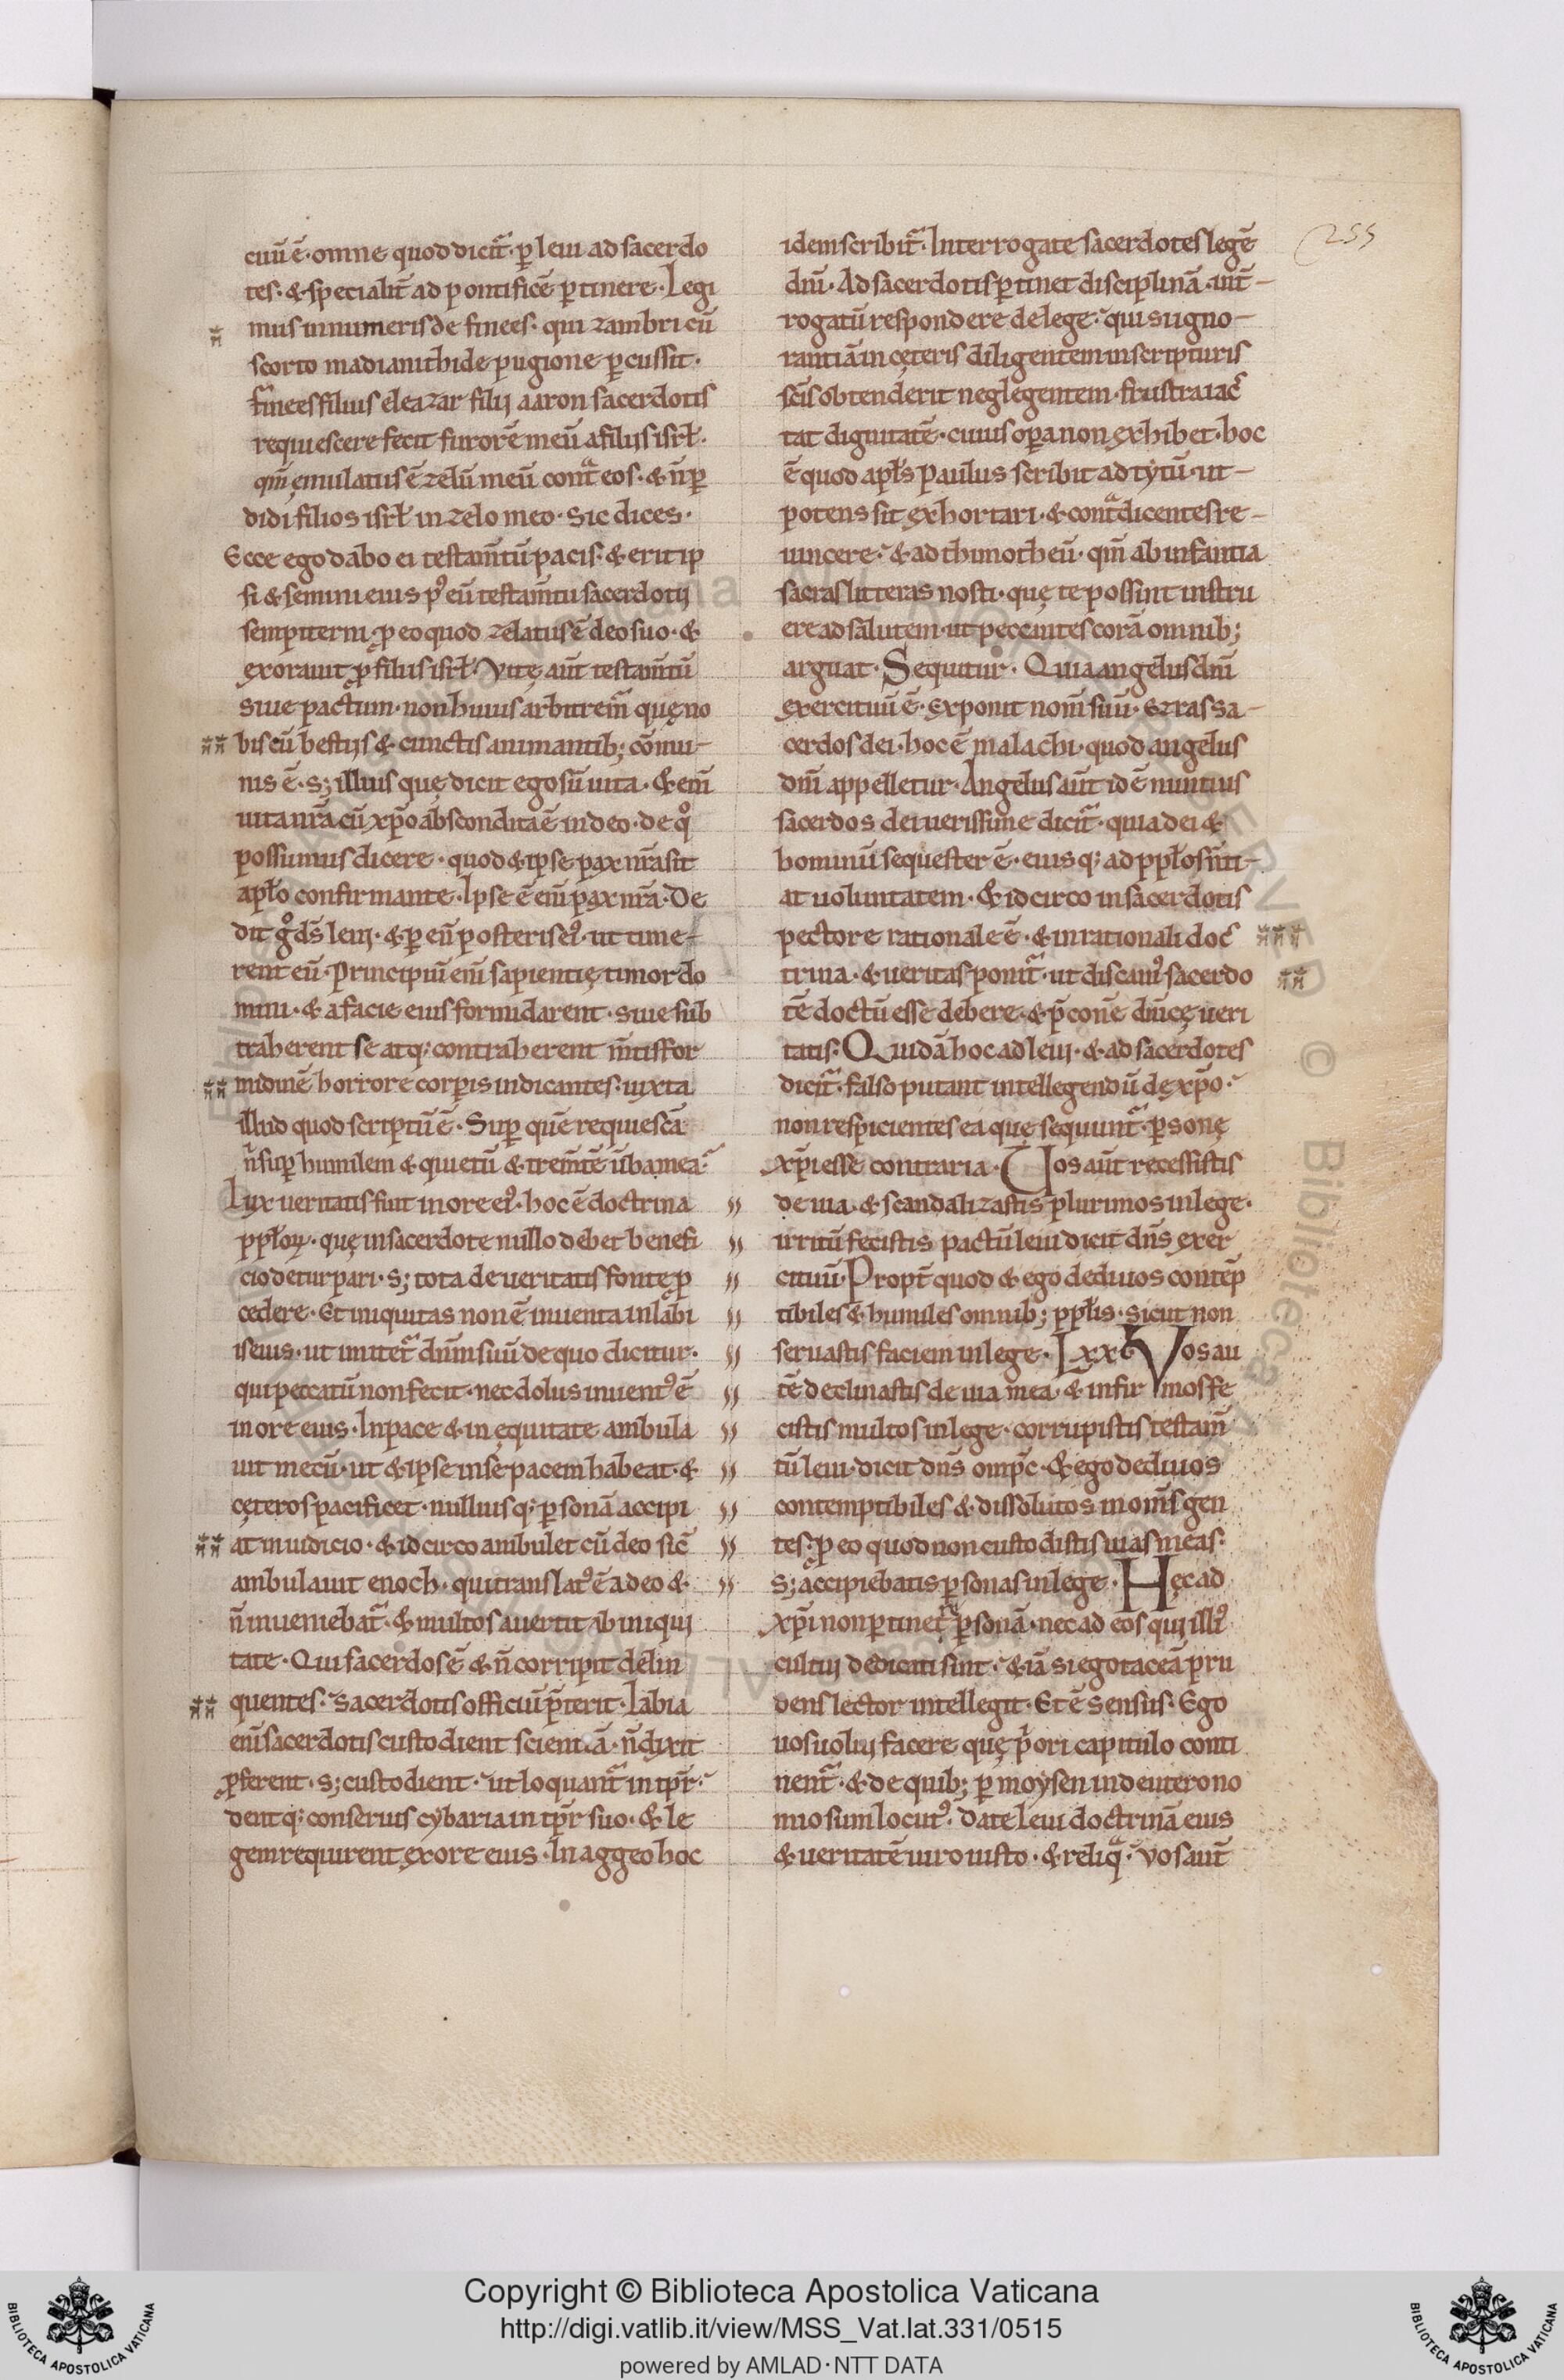 cuũ ẽ· omne quod dicit᷑· ꝑ leui ad sacerdo
tes· & specialit̃ ad pontificẽ ꝑtinere· Legi
mus in numeris de finees· qui zambri cũ
scorto madianithide pugione ꝑcussit·
finees filius eleazar filij aaron sacerdotis
requiescere fecit furorẽ meũ a filiis isrł·
qm̃ ęmulatus ẽ zelũ meũ cont̃ eos· & ñ ꝑ
didi filios isrł in zelo meo· Sic dices·
Ecce ego dabo ei testam̃tũ pacis· & erit ip
si & semini eius pꝰ eũ testam̃tũ sacerdotij
sempiterni· ꝓ eo quod zelatus ẽ deo suo· &
exorauit ꝓ filiis isrł· Vitę aũt testam̃tũ
siue pactum· non huius arbitrem̃ quę no
bis cũ bestijs & cunctis animantib; cõmu-
nis ẽ· s; illius quę dicit ego sũ uita· & em̃
uita nr̃a cũ xp̃o abscondita ẽ in deo· de qͦ
possumus dicere· quod & ipse pax nr̃a sit
apło confirmante· Ipse ẽ em̃ pax nr̃a· De
dit gͦ ds̃ leui· & ꝑ eũ posteris eiꝰ· ut time-
rent eũ· Principiũ em̃ sapientię timor do
mini· & a facie eius formidarent· siue sub
traherent se atq; contraherent m̃tis for
midinẽ horrore corꝑis indicantes· iuxta
illud quod scriptũ ẽ· Suꝑ quẽ requiescã
ñ suꝑ humilem & quietũ & trem̃tẽ ũba mea·
Lux ueritatis fuit in ore eiꝰ· hoc ẽ doctrina
ppłoꝝ· quę in sacerdote nullo debet benefi
cio deturpari· s; tota de ueritatis fonte ꝓ
cedere· Et iniquitas non ẽ inuenta in labi
is eius· ut imitet᷑ dñm suũ de quo dicitur·
qui peccatũ non fecit· nec dolus inuentꝰ ẽ
in ore eius· In pace & in ęquitate ambula
uit mecũ· ut & ipse in se pacem habeat· &
cęteros pacificet· nulliusq; ꝑsonã accipi
at in iudicio· & idcirco ambulet cũ deo sic̃
ambulauit enoch· qui translatꝰ ẽ a deo &
ñ inueniebat᷑· & multos auertit ab iniqui
tate· Qui sacerdos ẽ & ñ corripit delin
quentes· sacerdotis officiũ p̃terit· Labia
em̃ sacerdotis custodient scientiã· ñ dixit
ꝓferent· s; custodient· ut loquant᷑ in tp̃r·
dentq; conseruis cybaria in tp̃r suo· & le
gem requirent ex ore eius· In aggeo hoc
idem scribit᷑· Interrogate sacerdotes legẽ
dñi· Ad sacerdotis ꝑtinet disciplinã· int̃-
rogatũ respondere de lege· qui si igno-
rantiã in cęteris diligentem in scripturis
sc̃is obtenderit neglegentem· frustra iac̃
tat dignitatẽ· cuius oꝑa non exhibet· hoc
ẽ quod apłs paulus scribit ad tytũ· ut-
potens sit exhortari· & cont̃dicentes re-
uincere· & ad thimotheũ· qm̃ ab infantia
sacras litteras nosti· quę te possint instru
ere ad salutem· ut peccantes corã omnib;
arguat· Sequitur· Quia angelus dñi
exercituũ ẽ· exponit nom̃ suũ· Ezras sa-
cerdos dei· hoc ẽ malachi· quod angelus
dñi appelletur· Angelus aũt id ẽ nuntius
sacerdos dei uerissime dicit᷑· quia dei &
hominũ sequester ẽ· eiusq; ad ppłos ñti-
at uoluntatem· & idcirco in sacerdotis
pectore rationale ẽ· & in rationali doc̃
trina· & ueritas ponit᷑· ut discamꝰ sacerdo
tẽ doctũ esse debere· & p̃conẽ diuię ueri
tatis· Quidã hoc ad leui· & ad sacerdotes
dicit᷑· falso putant intellegendũ de xp̃o·
non respicientes ea quę sequunt᷑· ꝑsonę
xp̃i esse contraria· Vos aũt recessistis
de uia· & scandalizastis plurimos in lege·
irritũ fecistis pactũ leui dicit dñs exer
cituũ· Propt̃ quod & ego dedi uos contẽp
tibiles & humiles omnib; ppłis· sicut non
seruastis faciem in lege· Lxx· Vos au
tẽ declinastis de uia mea· & infirmos fe
cistis multos in lege· corrupistis testam̃
tũ leui· dicit dñs omp̃c· & ego dedi uos
contemptibiles & dissolutos in om̃s gen
tes· ꝓ eo quod non custodistis uias meas·
s; accipiebatis ꝑsonas in lege· Hęc ad
xp̃i non ꝑtinet᷑ ꝑsonã· nec ad eos qui illiꝰ
cultui dedicati sint· & iã si ego taceã pru
dens lector intellegit· Et ẽ sensus· Ego
uos uolui facere quę p̃ori capitulo conti
nent᷑· & de quib; ꝑ moysen in deuterono
mio sum locutꝰ· date leui doctrinã eius
& ueritatẽ uiro iusto· & reliq̃· vos aũt
255
Copyright © Biblioteca Apostolica Vaticana
http://digi.vatlib.it/view/MSS_Vat.lat.331/0515
powered by AMLAD·NTT DATA
BIBLIOTECA APOSTOLICA VATICANA
BIBLIOTECA APOSTOLICA VATICANA